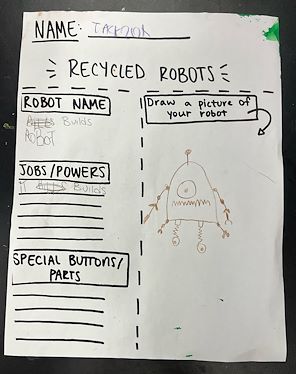 NAME:
RECYCLED ROBOTS
ROBOT NAME
Builds
ROBOT
Draw a picture of
your robot
JOBS/POWERS
Builds
SPECIAL BUTTONS/
PARTS